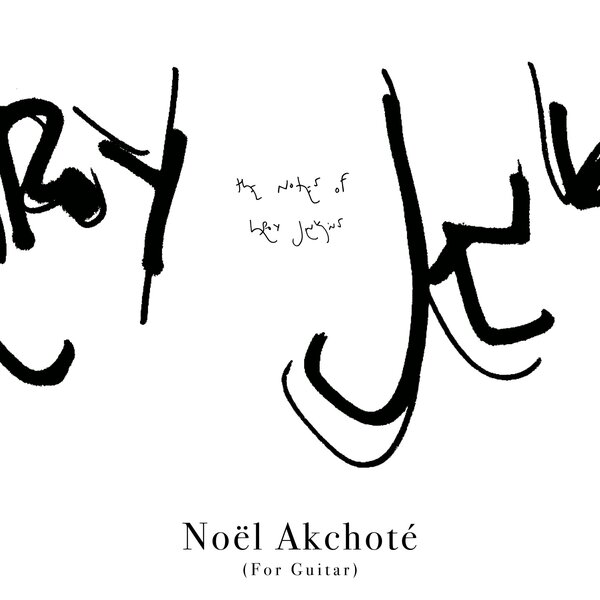 ROY Je
the Notes of
LeROY JeNKiNS
Noël Akchoté
(For Guitar)